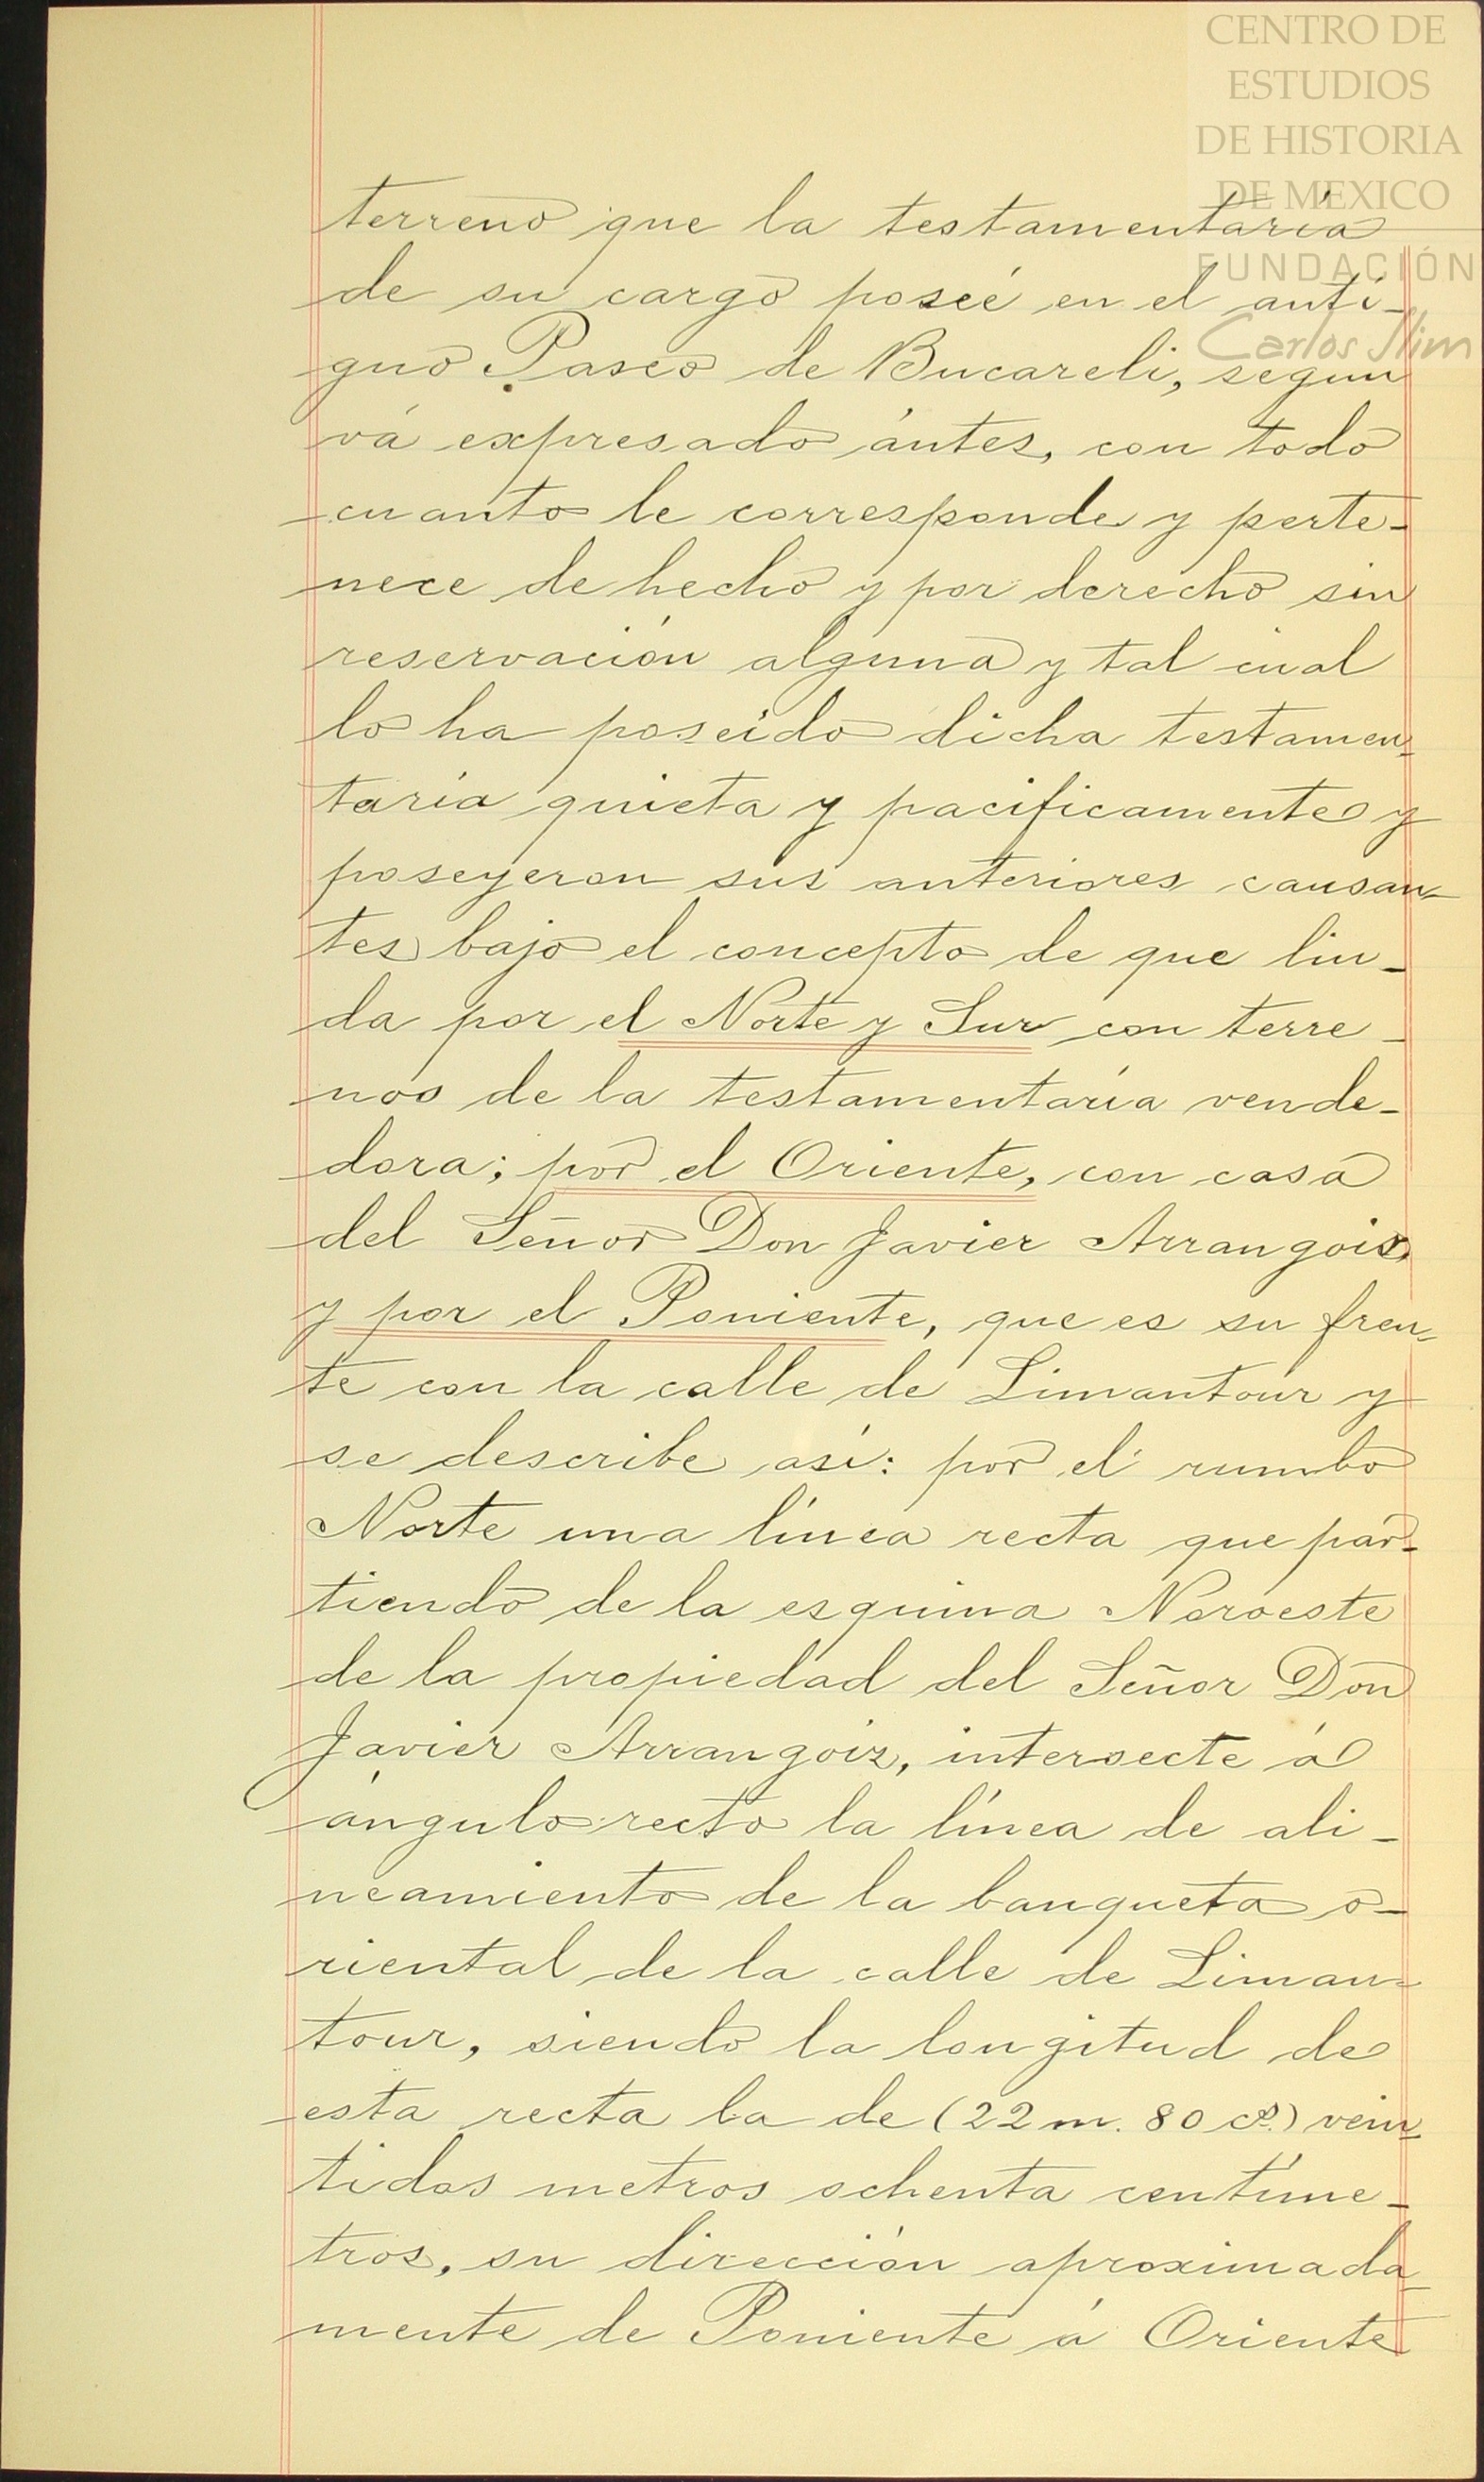 CENTRO DE
ESTUDIOS
DE HISTORIA
DE MEXICO
FUNDACIÓN
Carlos Slim
terreno que la testamentaría
de su cargo poseé en el anti-
guo Paseo de Bucareli, segun
vá expresado ántes, con todo
cuanto le corresponde y perte-
nece de hecho y por derecho sin
reservación alguna y tal cual
lo ha poseido dicha testamen-
taría quieta y pacificamente y
poseyeron sus anteriores causan-
tes bajo el concepto de que lin-
da por el Norte y Sur con terre-
nos de la testamentaría vende-
dora; por el Oriente, con casa
del Señor Don Javier Arrangoiz,
y por el Poniente, que es su fren-
te con la calle de Limantour y
se describe así: por el rumbo
Norte una línea recta que par-
tiendo de la esquina Noroeste
de la propiedad del Señor Don
Javier Arrangoiz, intersecte á
ángulo recto la línea de ali-
neamiento de la banqueta o-
riental de la calle de Liman-
tour, siendo la longitud de
esta recta la de (22 m. 80 cs.) vein-
tidos metros ochenta centíme-
tros, su dirección aproximada-
mente de Poniente á Oriente